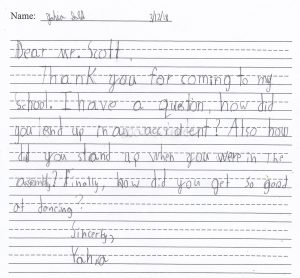 Name: 3/12/18
Dear Mr. Scott,
Thank you for coming to my
school. I have a question, how did
you end up in an accident? Also how
did you stand up when you were in the
assembly? Finally, how did you get so good
at dancing?
Sincerly,